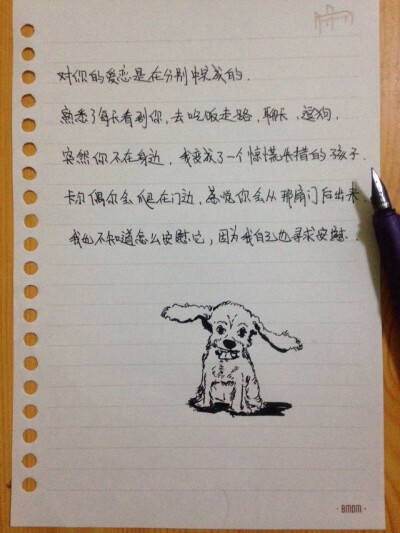 对你的爱恋是在分别中完成的.
熟悉了每天看到你,去吃饭走路,聊天,遛狗.
突然你不在身边,我变成了一个惊慌失措的孩子.
卡尔偶尔会爬在门边,感觉你会从那扇门后出来
我也不知道怎么安慰它,因为我自己也寻求安慰.
·BMDM·